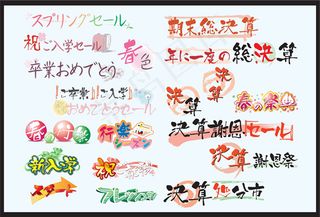 スプリングセール
祝ご入学セール
春色
卒業おめでとう
ご卒業
ご入学
おめでとうセール
春の祭
行楽シーズン
新入学
祝
スタート
フレッシュ
期末総決算
年に一度の総決算
決算
決算
春の祭典
決算謝恩セール
決算
謝恩祭
決算処分市